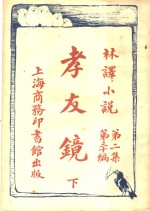 林譯小說
第二集
第三十編
孝友鏡
下
上海商務印書館出版